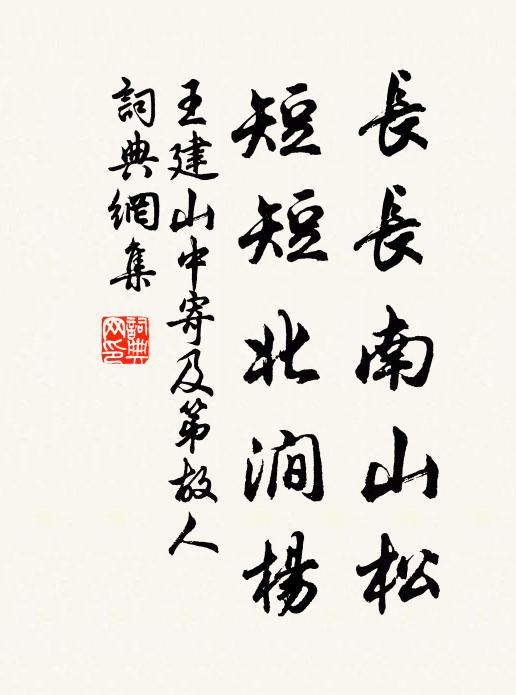 長長南山松
短短北澗楊
王建山中寄及第故人
詞典網集
詞典
网印